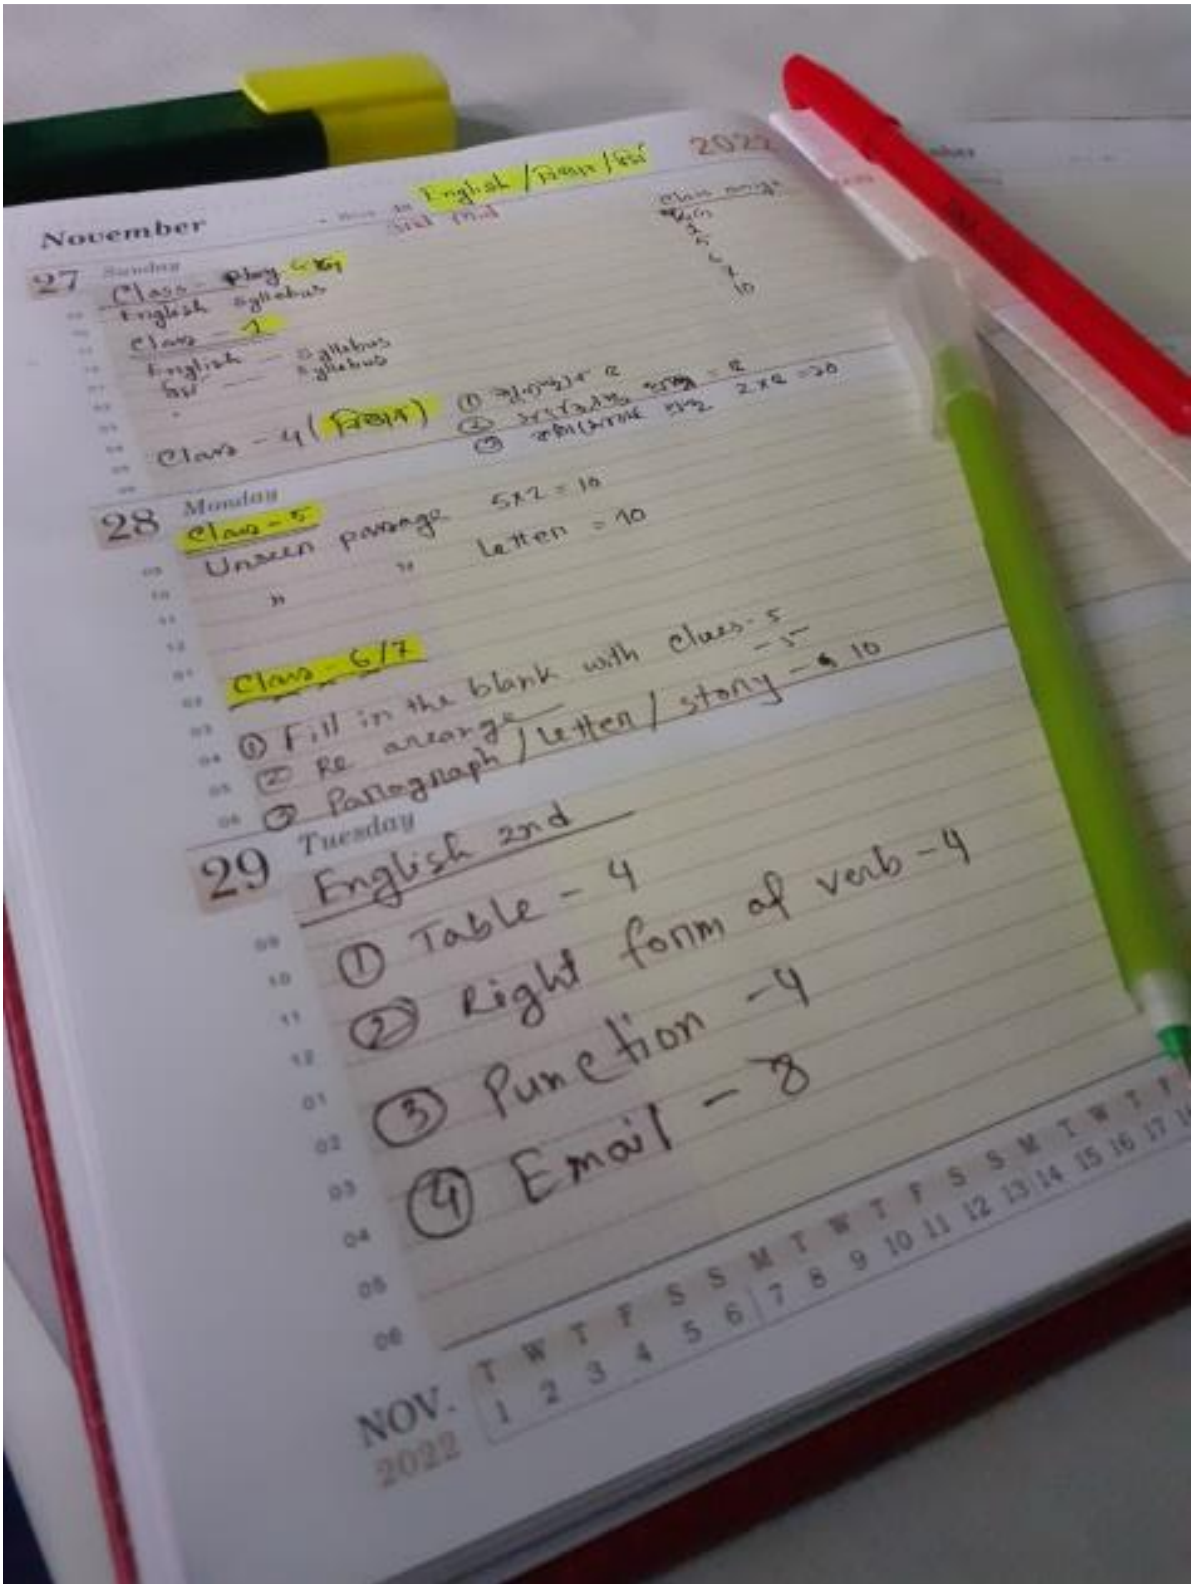 English / বিজ্ঞান / ধর্ম
2022
November
3rd Mid
27 Sunday
Class - Play
English syllabus
Class - 1
English — syllabus
ধর্ম — syllabus
10
Class - 4 (বিজ্ঞান)
①
② = ৫
③ ২×৫ = ১০
28 Monday
Class - 5
Unseen passage 5×2 = 10
" " Letter = 10
Class - 6/7
① Fill in the blank with clues - 5
② Re arrange - 5
③ Paragraph / Letter / story - 10
29 Tuesday
English 2nd
① Table - 4
② Right form of verb - 4
③ Punction - 4
④ Email - 8
09
10
11
12
01
02
03
04
05
06
T W T F S S M T W T F S S M T W T F
NOV. 1 2 3 4 5 6 7 8 9 10 11 12 13 14 15 16 17 18
2022